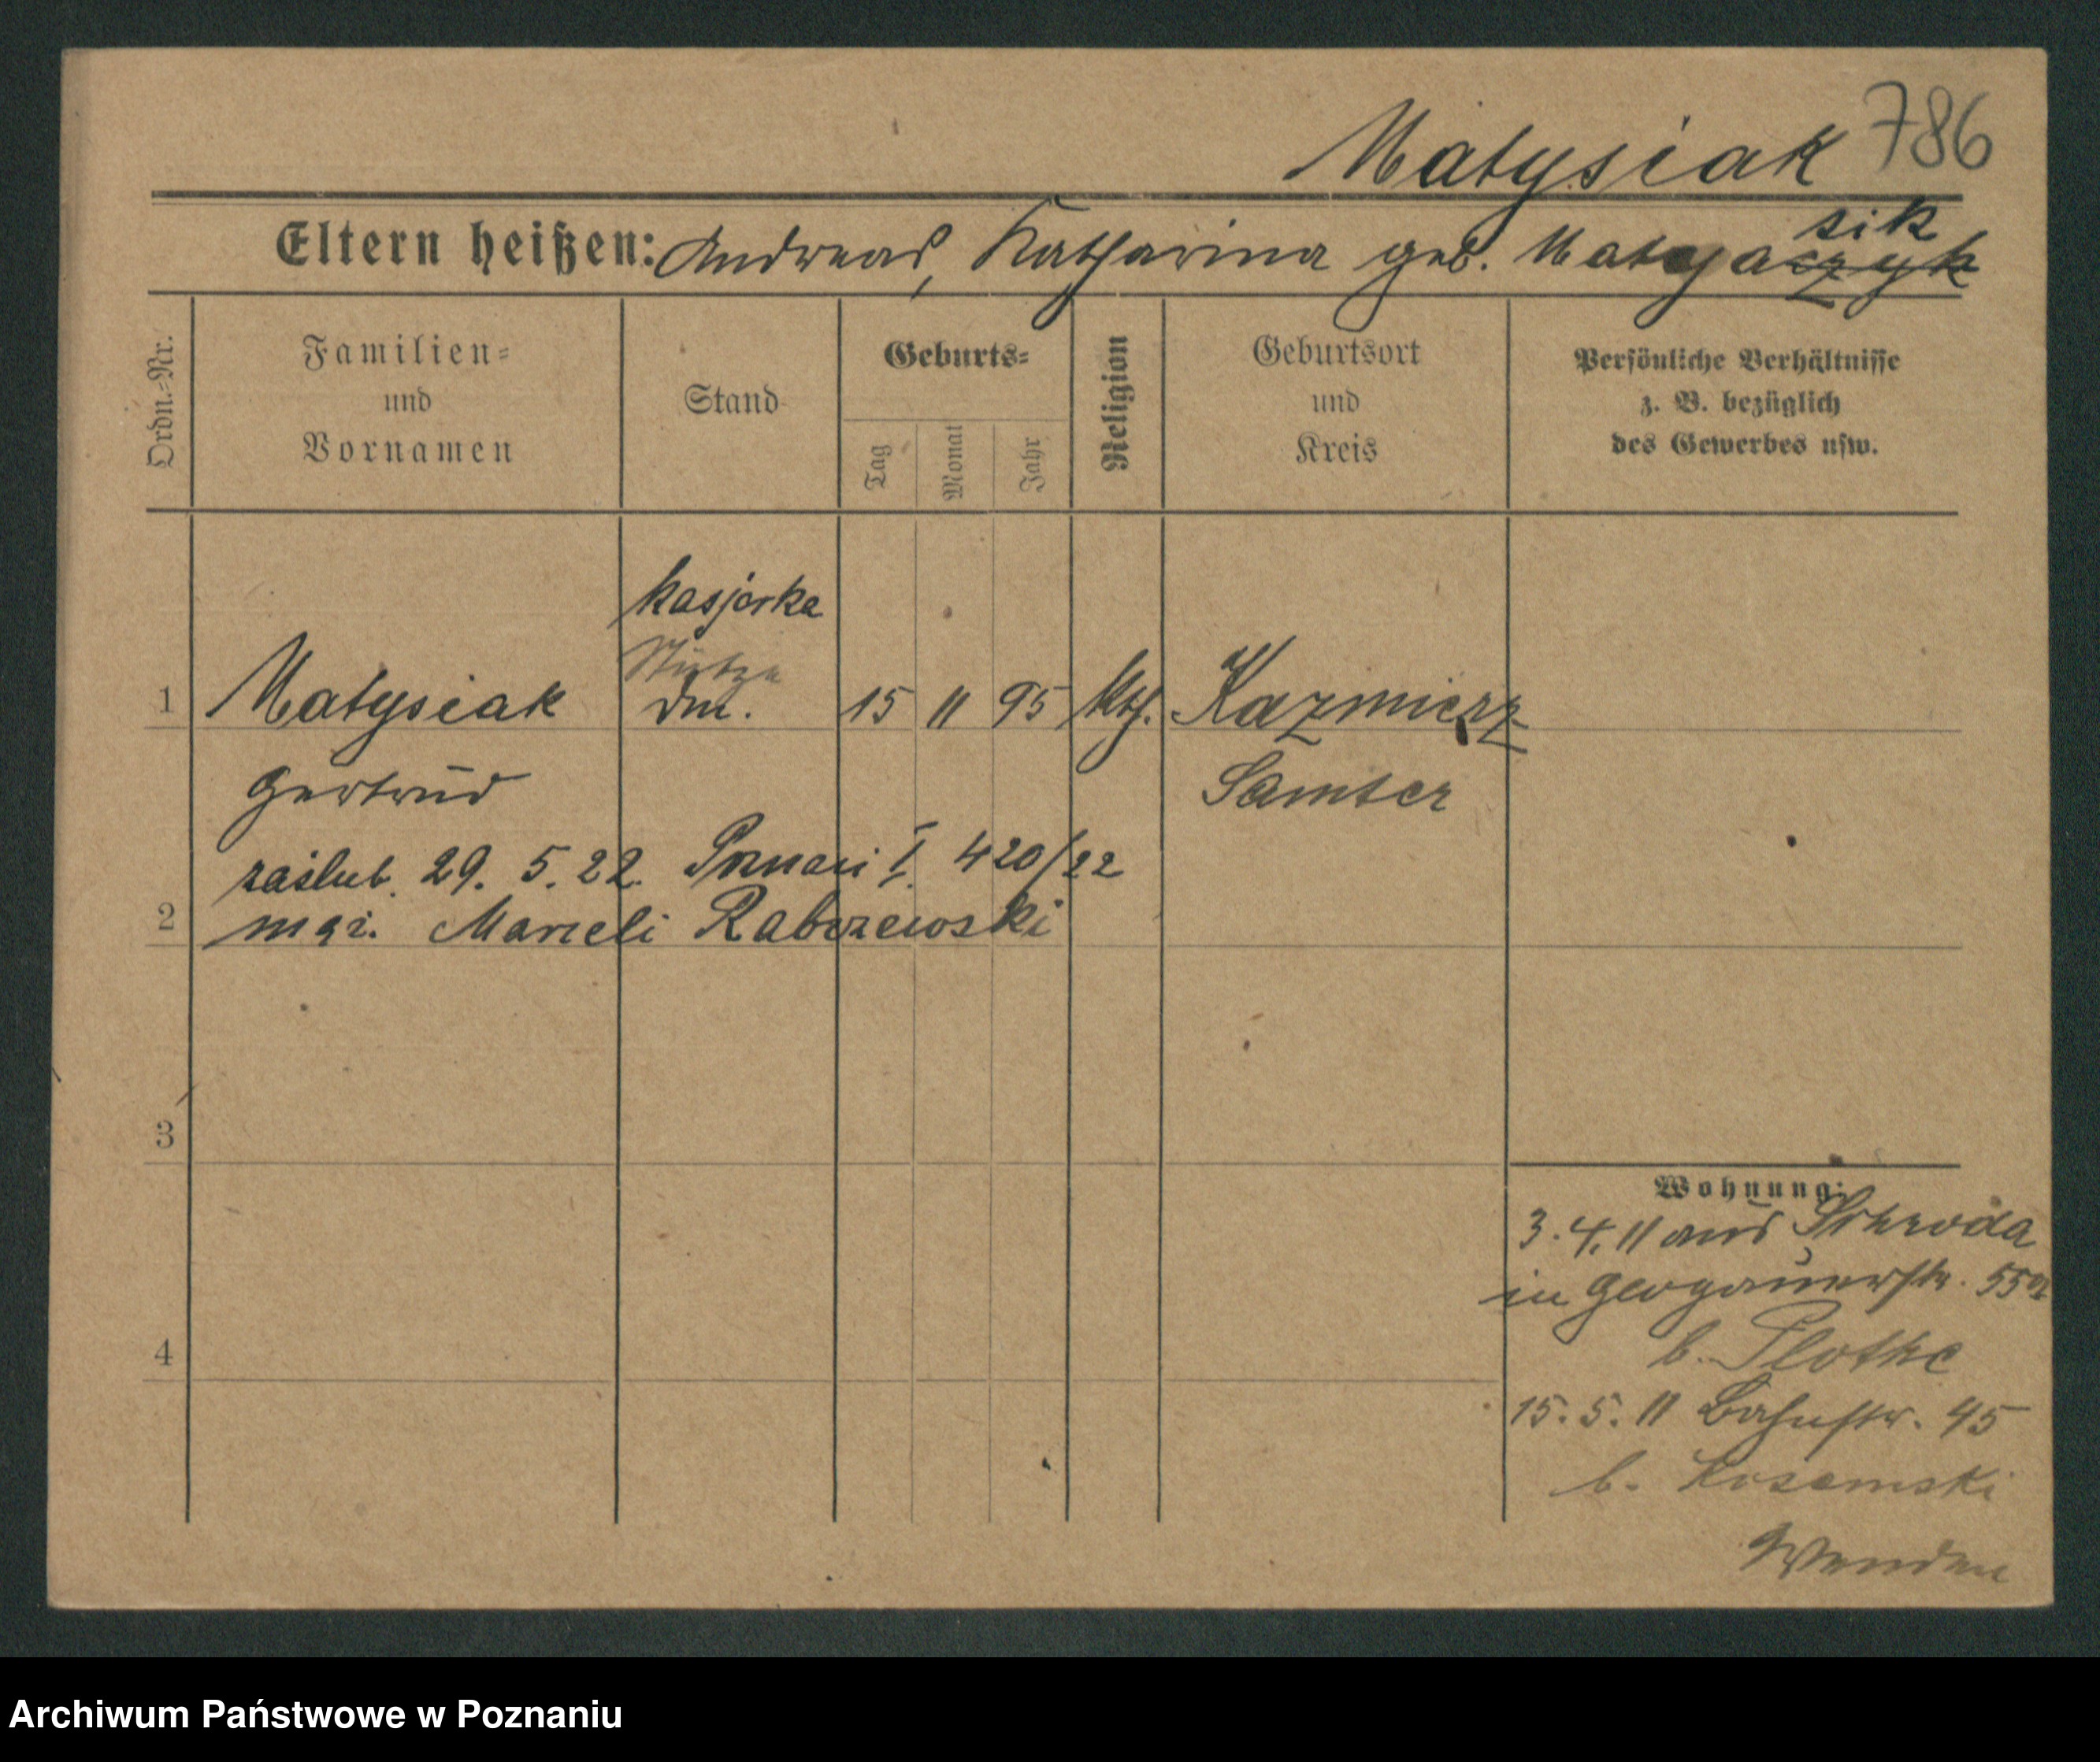 Matysiak 786
Eltern heißen: Andreas, Katharina geb. Matyaczyk
sik
Ordn.-Nr.
Familien-
und
Vornamen
Stand
Geburts-
Tag
Monat
Jahr
Religion
Geburtsort
und
Kreis
Persönliche Verhältnisse
z. B. bezüglich
des Gewerbes usw.
kasjerka
Stütze
1 Matysiak Dm. 15 11 95 kth. Kazmierz
Gertrud Samter
zaślub. 29. 5. 22. Poznań I. 420/22
2 mgr. Marceli Rabczewski
3
4
Wohnung:
3. 4. 11 aus Schroda
in Glogauerstr. 55
b. Plothe
15. 5. 11 Bahnstr. 45
b.
Wenden
Archiwum Państwowe w Poznaniu